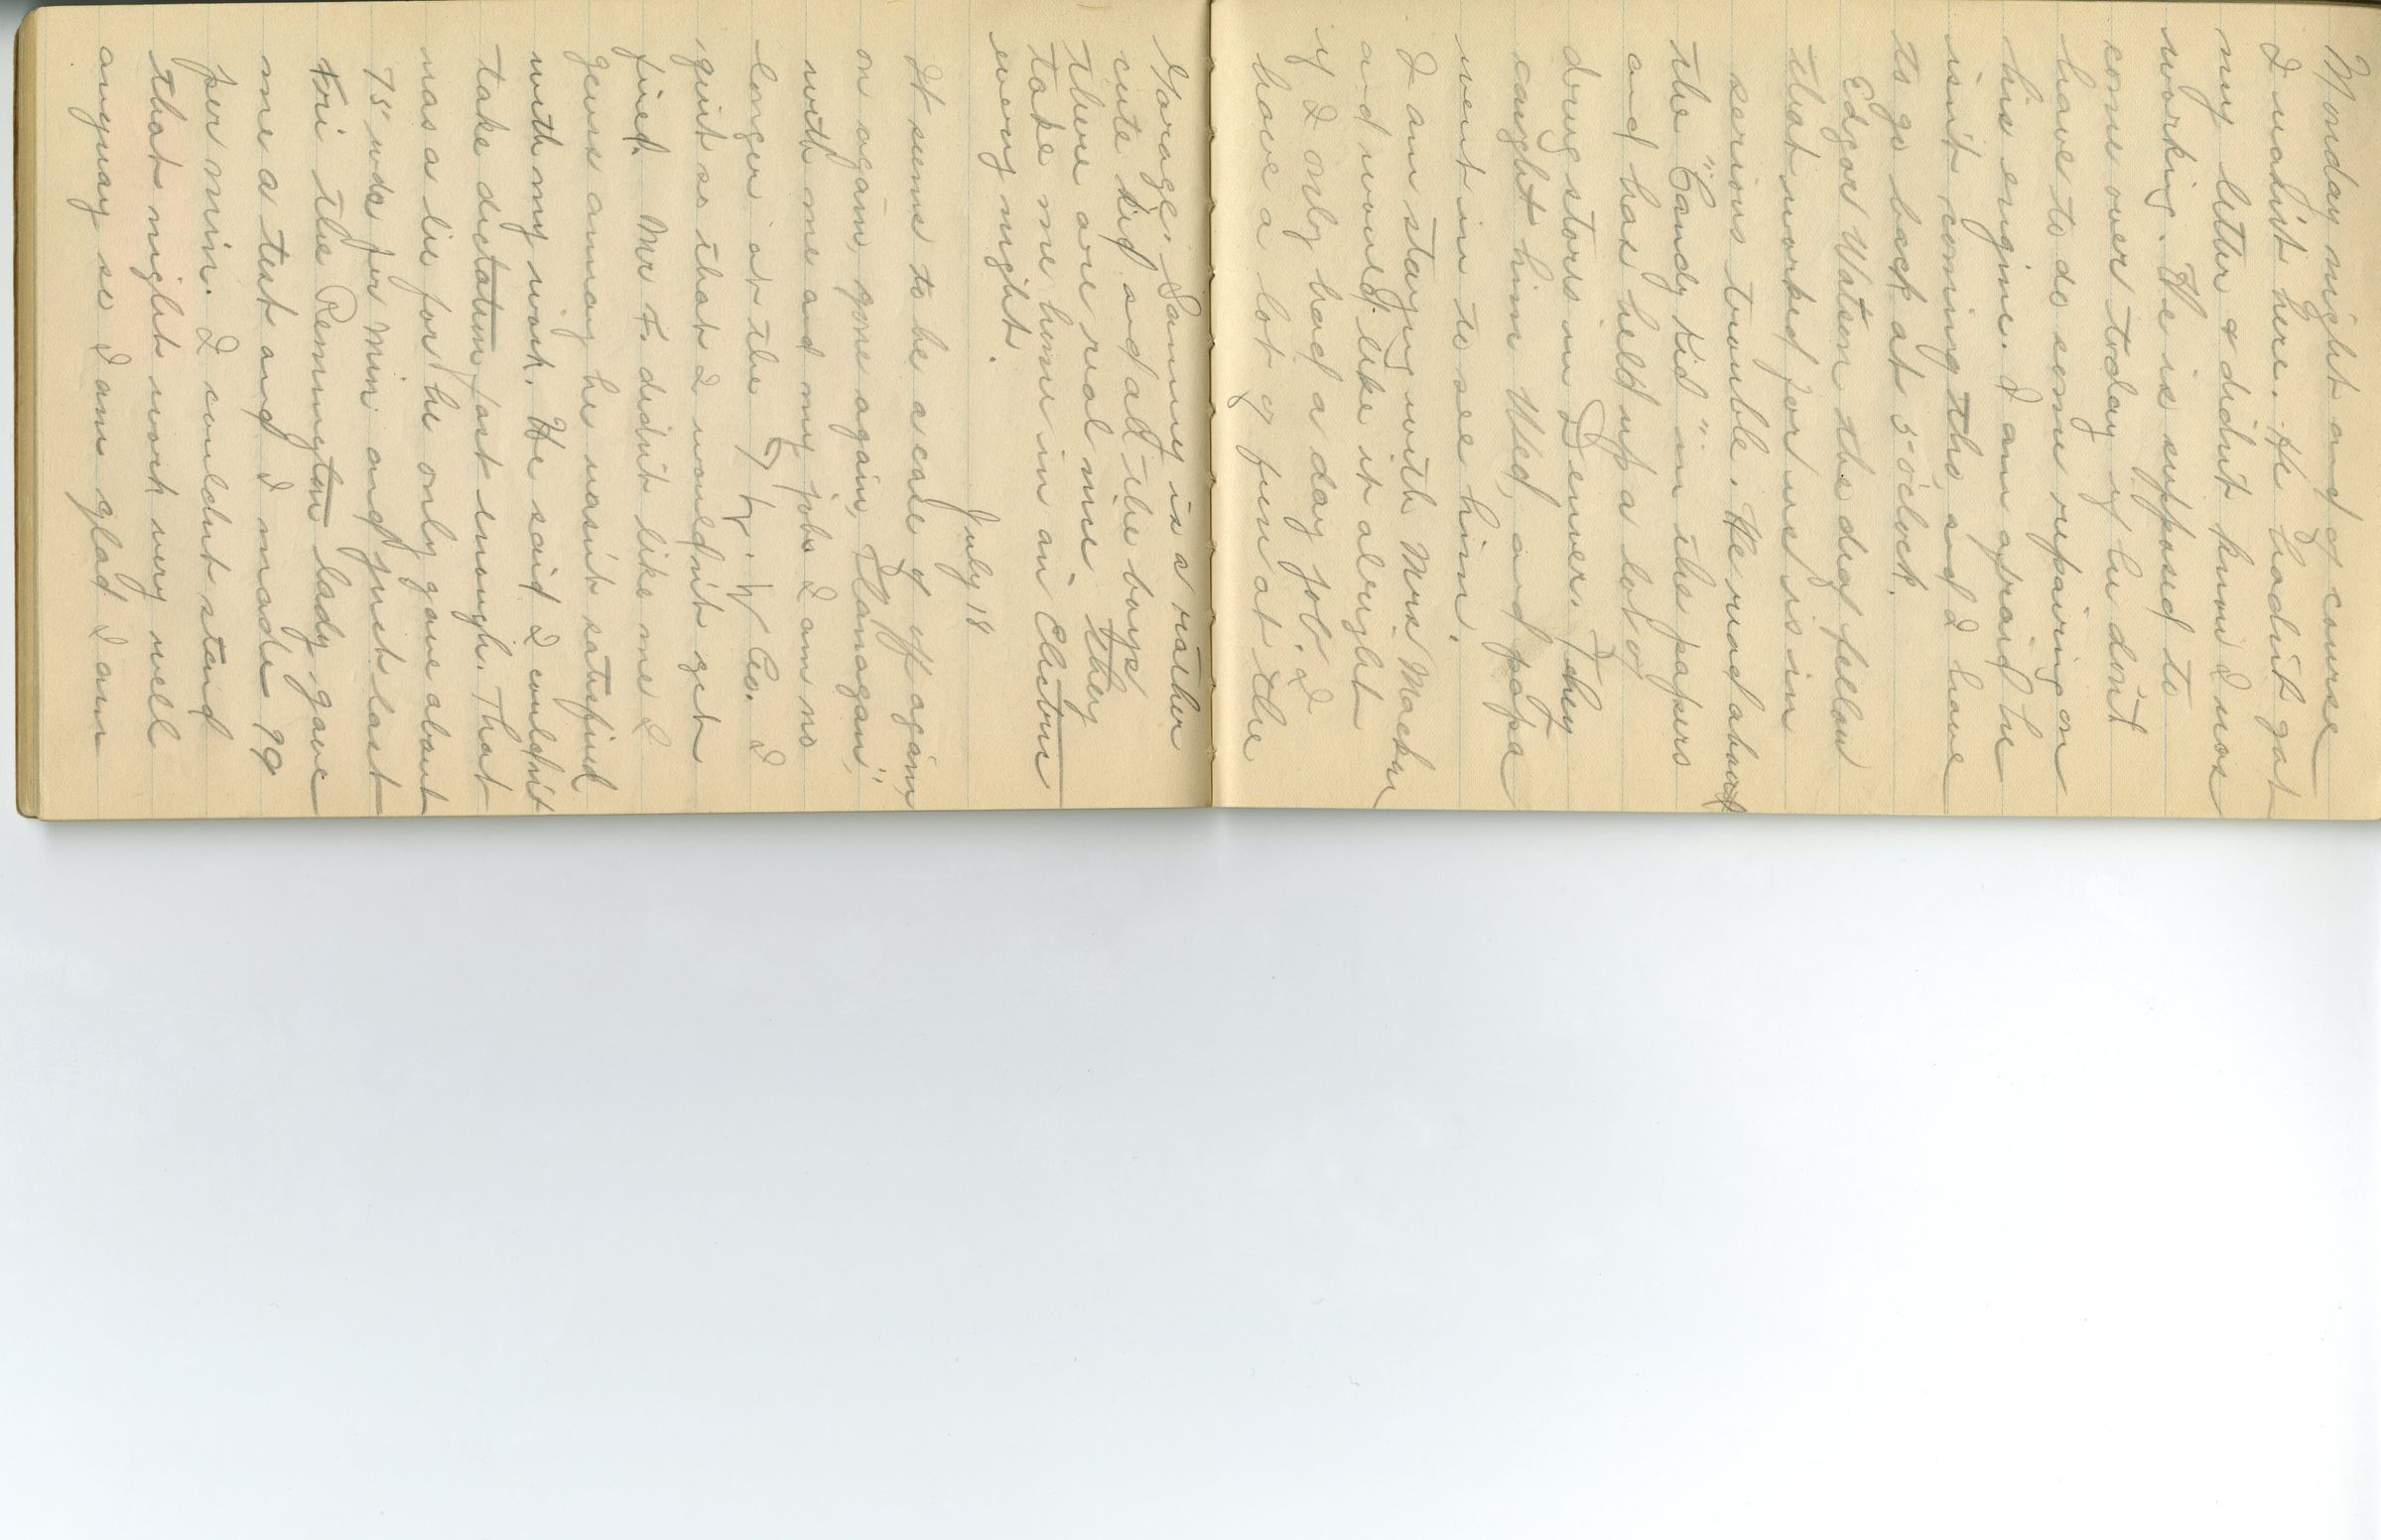 Monday night and of course
I wasn't here. He hadn't got
my letter & didn't know I was
working. He is supposed to
come over today if he don't
have to do some repairing on
his engine. I am afraid he
isn't coming tho, and I have
to go back at 5 o'clock.
Edgar Watson the deaf fellow
that worked for us is in
serious trouble. He read about
the "Candy Kid" in the papers
and has held up a lot of
drug stores in Denver. They
caught him Wed, and papa
went in to see him.
I am staying with Mrs Mackey
and would like it alright
if I only had a day job. I
have a lot of fun at the
Garage. Sammy is a rather
cute kid and all the boys
there are real nice they
take me home in an Electric
every night.
July 18
It seems to be a case of "off again,
on again, gone again, Flanagan",
with me and my jobs I am no
longer at the F. W. Co. I
quit so that I wouldn't get
fired. Mr F. didn't like me I
guess anyway he wasn't satisfied
with my work. He said I couldn't
take dictation fast enough. That
was a lie for he only gave about
75 wds per min and just last
Fri the Remington lady gave
me a test and I made 99
per min. I couldn't stand
that night work very well
anyway so I am glad I am